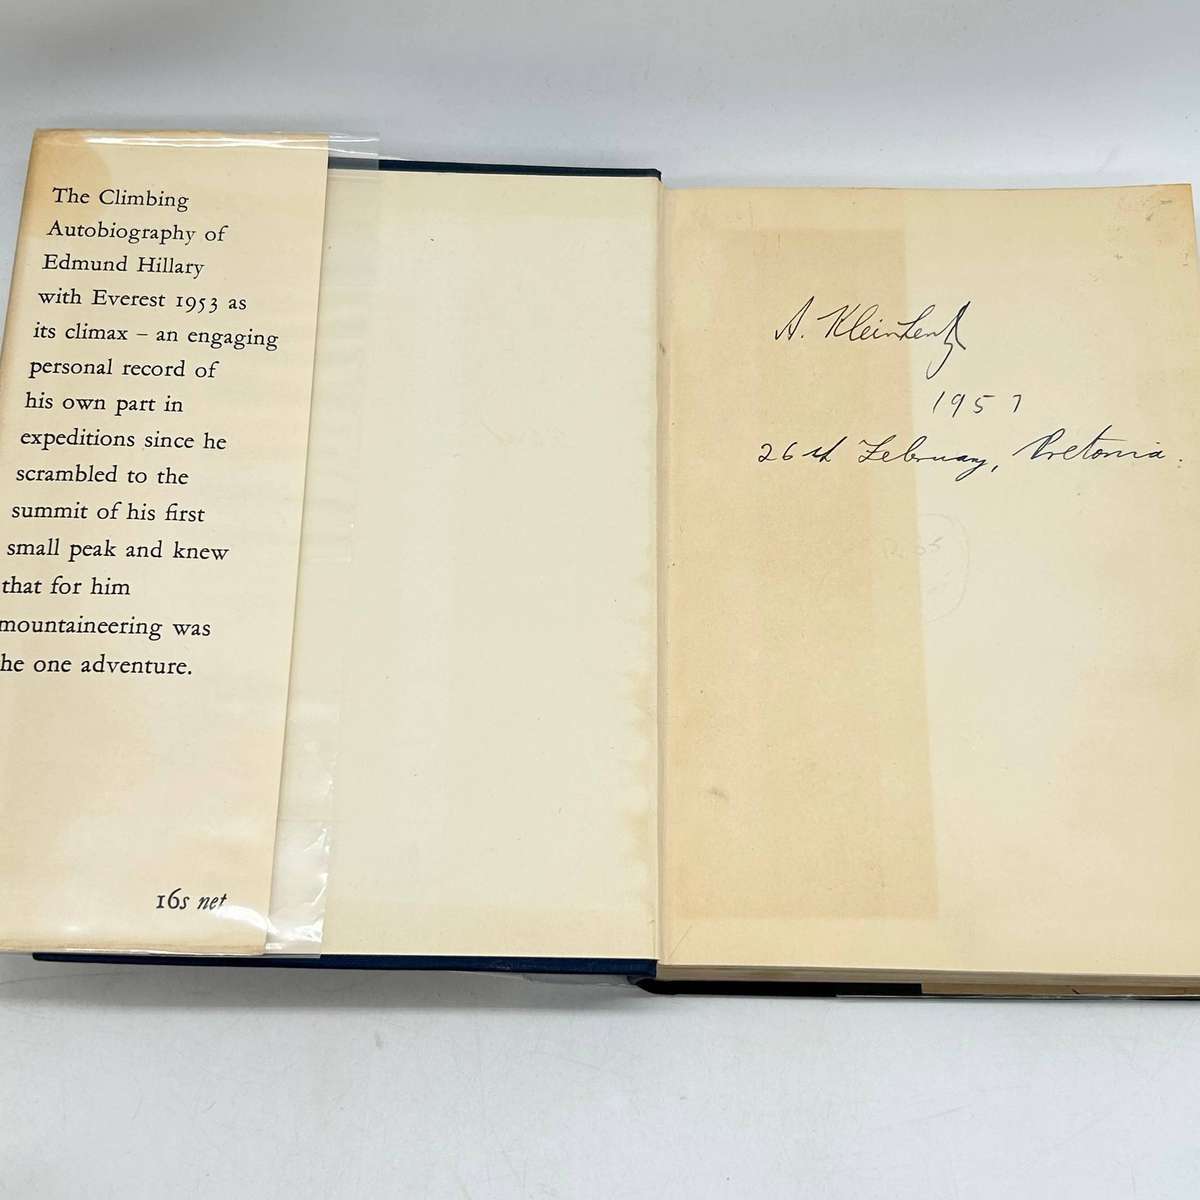 The Climbing
Autobiography of
Edmund Hillary
with Everest 1953 as
its climax – an engaging
personal record of
his own part in
expeditions since he
scrambled to the
summit of his first
small peak and knew
that for him
mountaineering was
he one adventure.
16s net
A. Kleinhentz
1957
26th February, Pretoria.